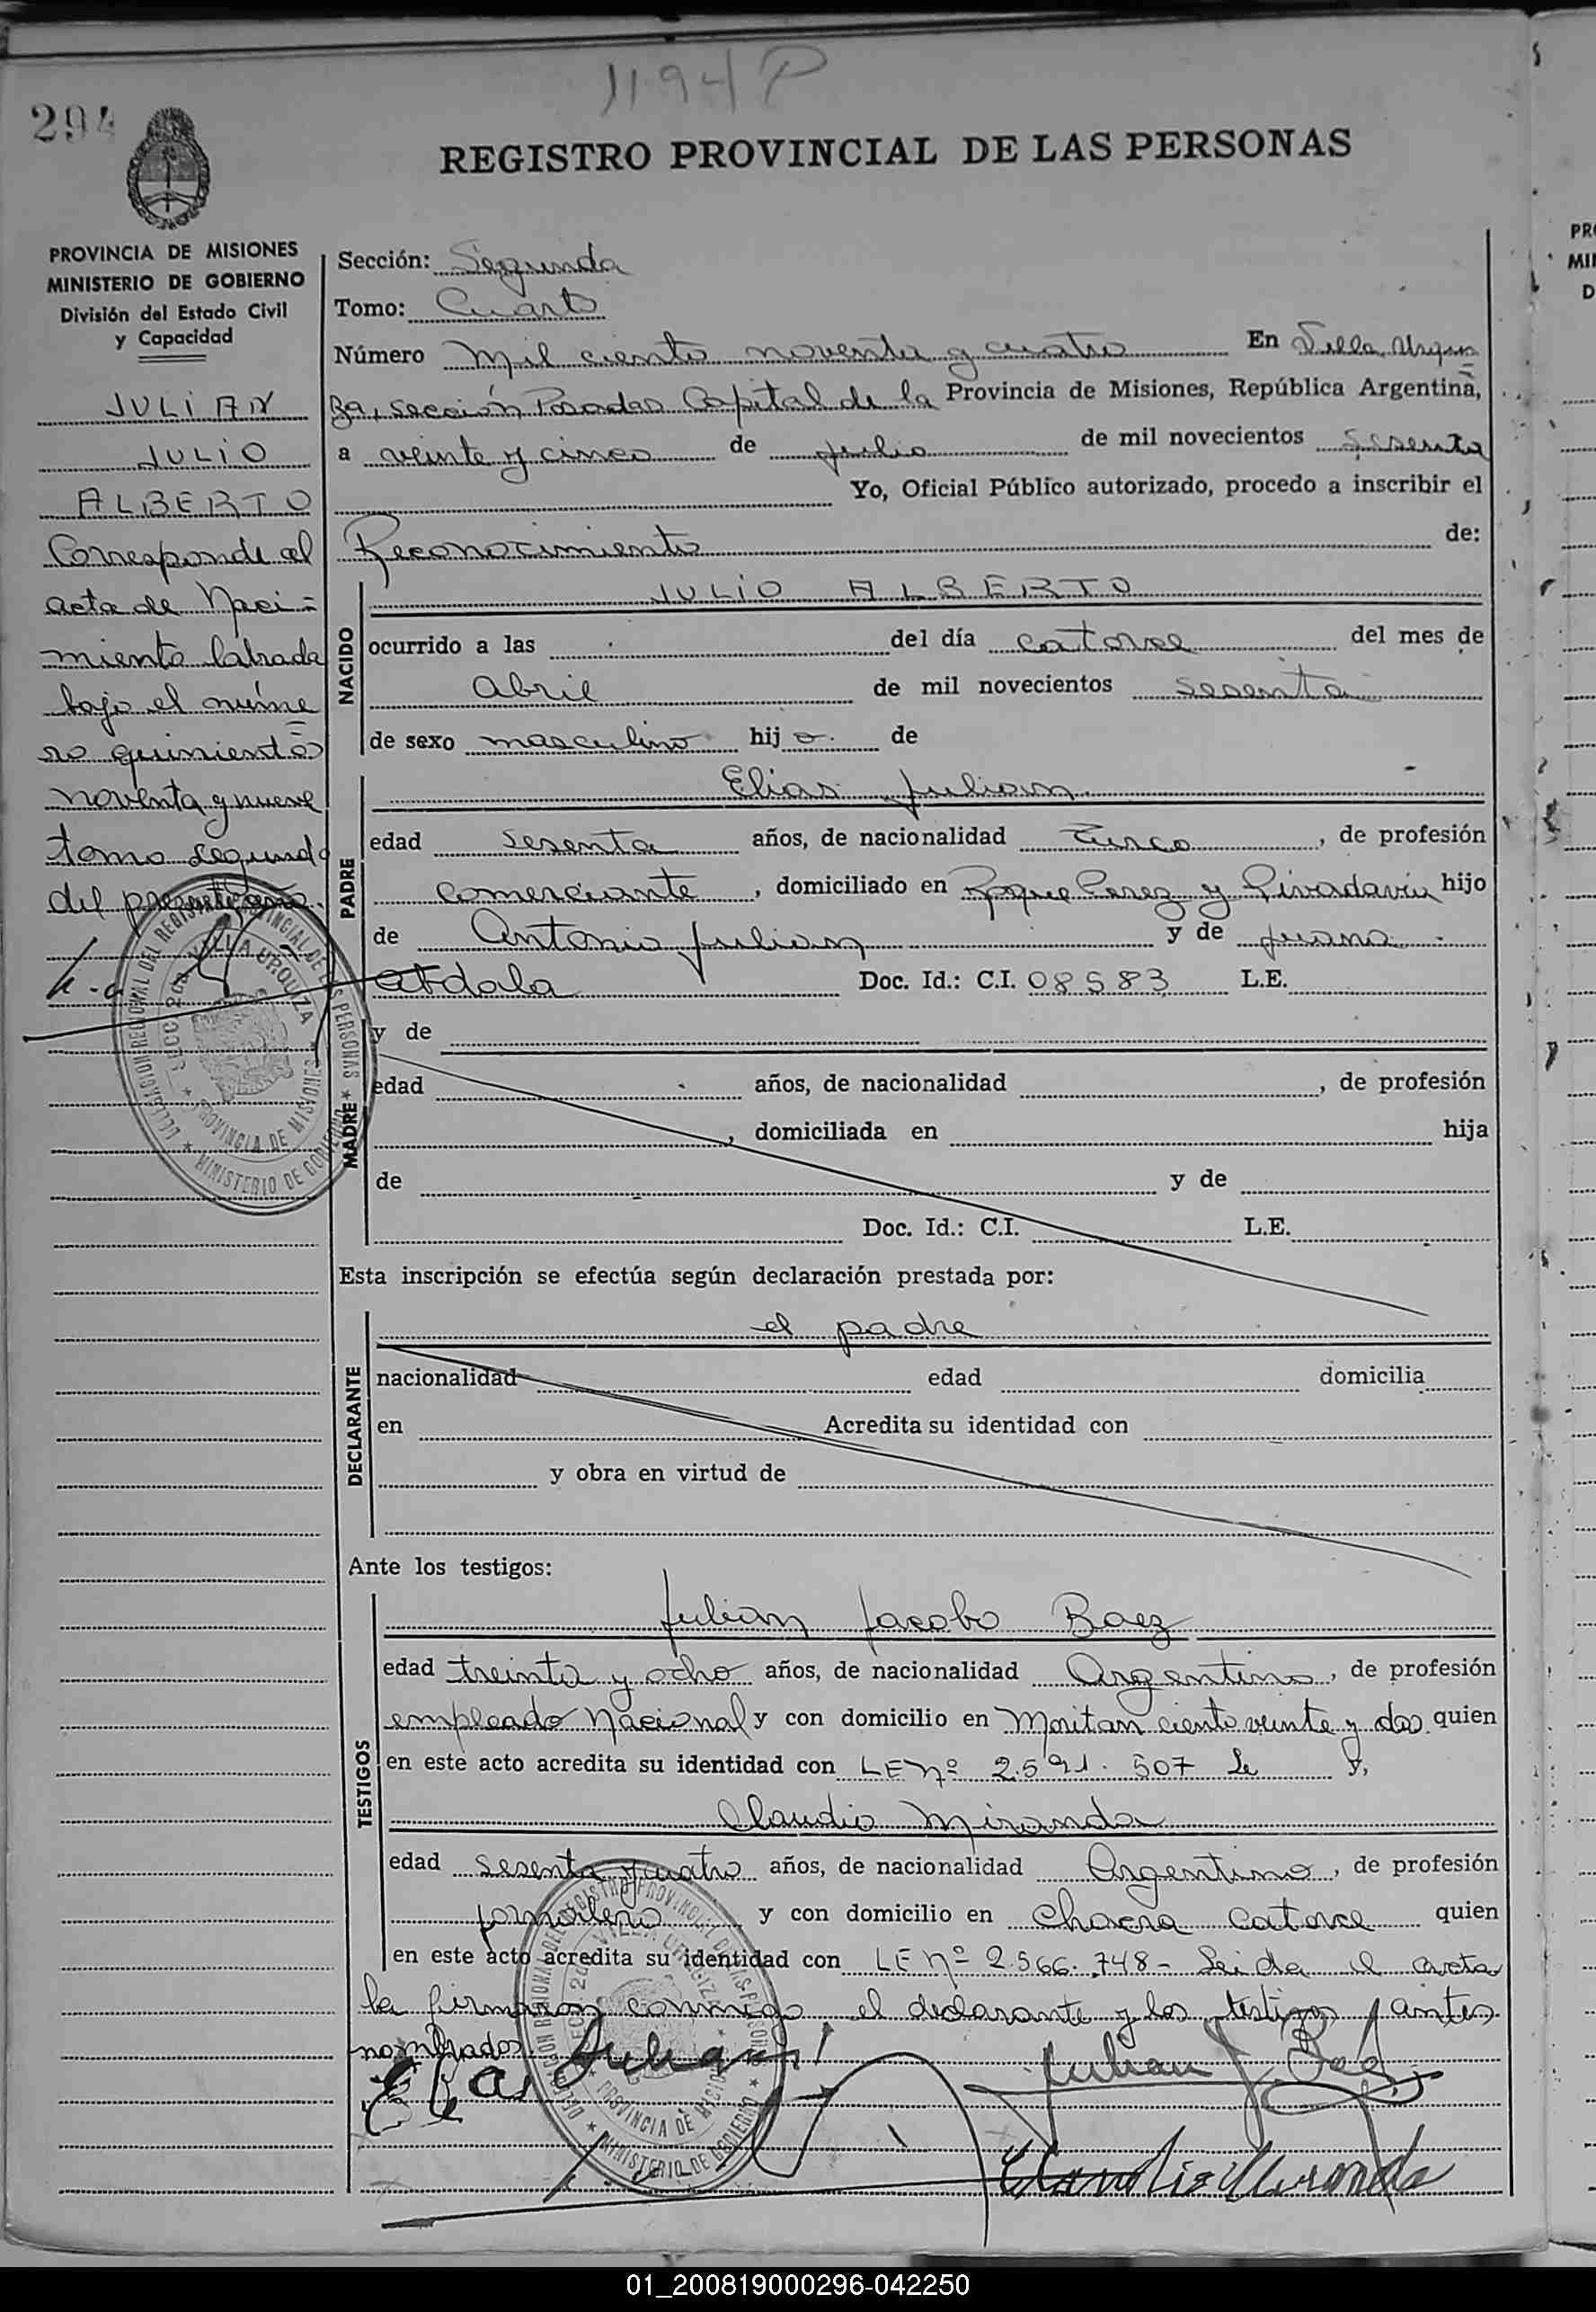 1194 P
294
REGISTRO PROVINCIAL DE LAS PERSONAS
PROVINCIA DE MISIONES
MINISTERIO DE GOBIERNO
División del Estado Civil
y Capacidad
JULIAN
JULIO
ALBERTO
Corresponde al
acta de Naci=
miento labrada
bajo el núme
ro quinientos
noventa y nueve
tomo segundo
del presente año.
Sección: Segunda
Tomo: Cuarto
Número Mil ciento noventa y cuatro En Villa Urqui
za, sección Posadas Capital de la Provincia de Misiones, República Argentina,
a veinte y cinco de julio de mil novecientos sesenta
Yo, Oficial Público autorizado, procedo a inscribir el
Reconocimiento de:
NACIDO
JULIO ALBERTO
ocurrido a las del día catorce del mes de
Abril de mil novecientos sesenta
de sexo masculino hijo de
PADRE
Elias Julian
edad sesenta años, de nacionalidad Turco, de profesión
comerciante, domiciliado en Roque Perez y Rivadavia hijo
de Antonio Julian y de Juana
Abdala Doc. Id.: C.I. 08583 L.E.
MADRE
y de
edad años, de nacionalidad , de profesión
, domiciliada en hija
de y de
Doc. Id.: C.I. L.E.
Esta inscripción se efectúa según declaración prestada por:
DECLARANTE
el padre
nacionalidad edad domicilia
en Acredita su identidad con
y obra en virtud de
Ante los testigos:
TESTIGOS
Julian Jacobo Baez
edad treinta y ocho años, de nacionalidad Argentino, de profesión
empleado Nacional y con domicilio en ciento veinte y dos quien
en este acto acredita su identidad con LE Nº 2.591.507 y,
Claudio Miranda
edad sesenta y cuatro años, de nacionalidad Argentino, de profesión
jornalero y con domicilio en Chacra Catorce quien
en este acto acredita su identidad con LE Nº 2.566.748 - Leida el acta
la firmaron conmigo el declarante y los testigos antes
nombrados.
Elias Julian
Julian J. Baez
Claudio Miranda
DELEGACION REGIONAL DEL REGISTRO PROVINCIAL DE LAS PERSONAS
SECC 2da VILLA URQUIZA
PROVINCIA DE MISIONES
MINISTERIO DE GOBIERNO
01_200819000296-042250